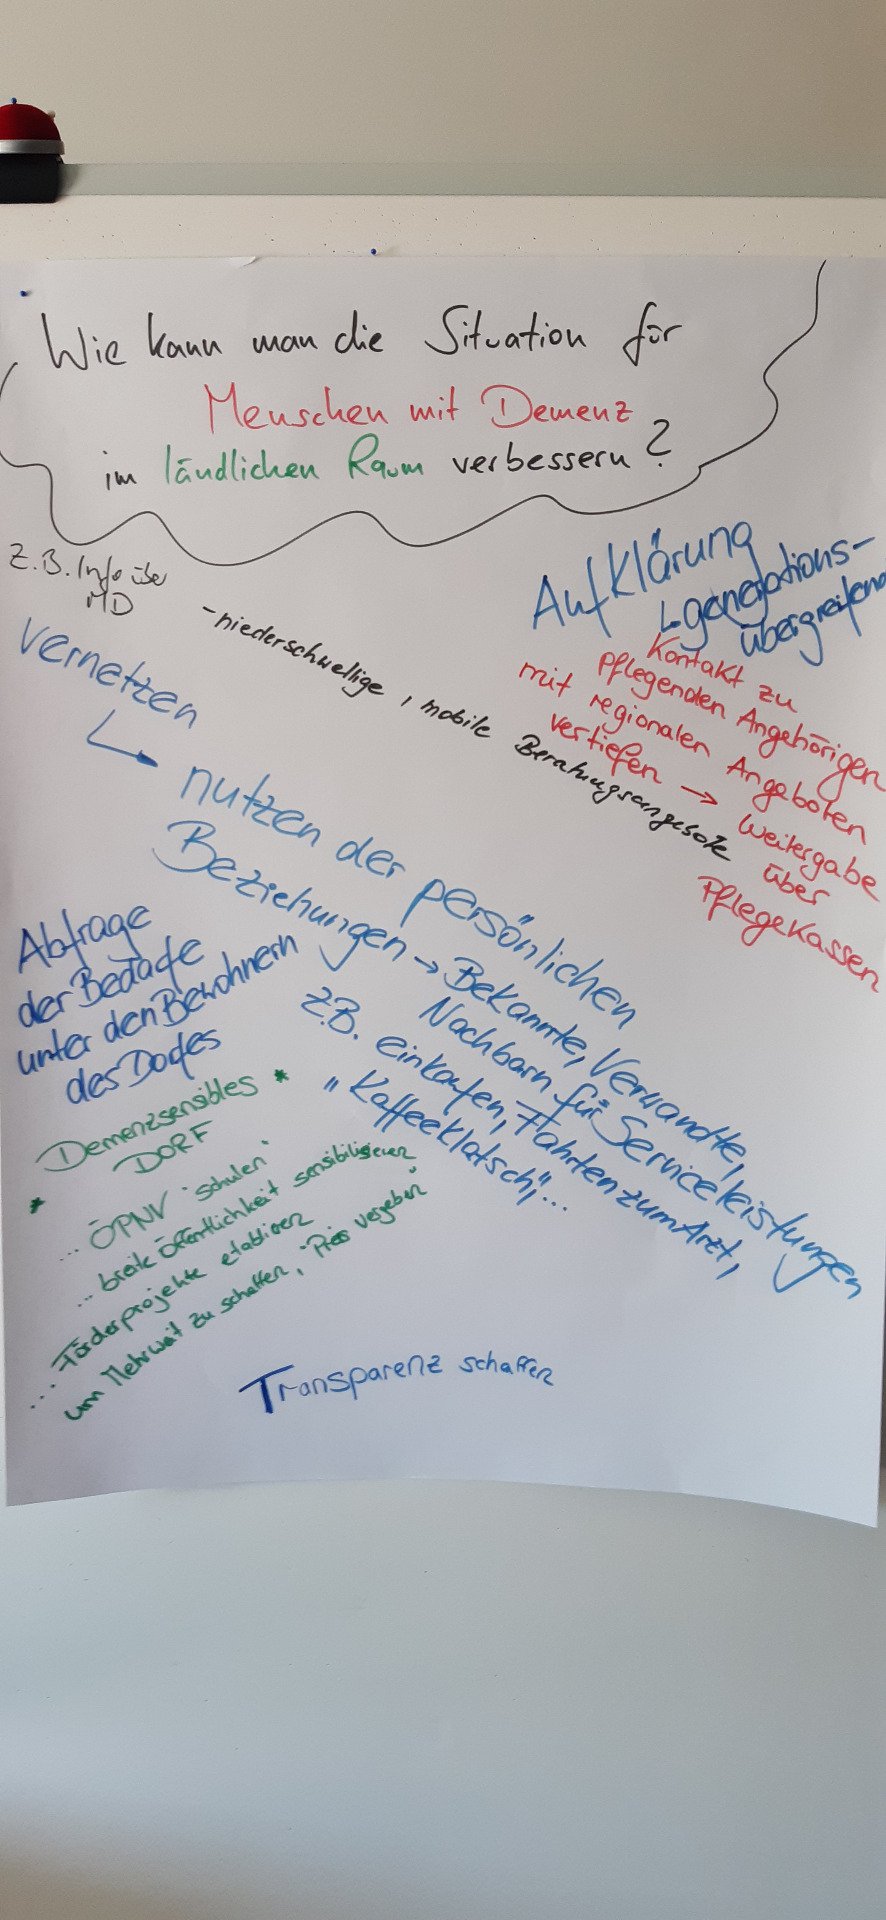 Wie kann man die Situation für
Menschen mit Demenz
im ländlichen Raum verbessern?
Z.B. Info über
MD
vernetzen
- niederschwellige, mobile Beratungsangebote
Aufklärung
generations-
übergreifend
Kontakt zu
pflegenden Angehörigen
mit regionalen Angeboten
vertiefen → Weitergabe
über
Pflegekassen
nutzen der persönlichen
Beziehungen → Bekannte, Verwandte,
Nachbarn für Serviceleistungen
z.B. einkaufen, Fahrten zum Arzt,
"Kaffeeklatsch", ...
Abfrage
der Bedarfe
unter den Bewohnern
des Dorfes
* Demenzsensibles *
DORF
... ÖPNV "schulen"
... breite Öffentlichkeit sensibilisieren
... Förderprojekte etablieren
um Mehrwert zu schaffen, "Preis vergeben"
Transparenz schaffen